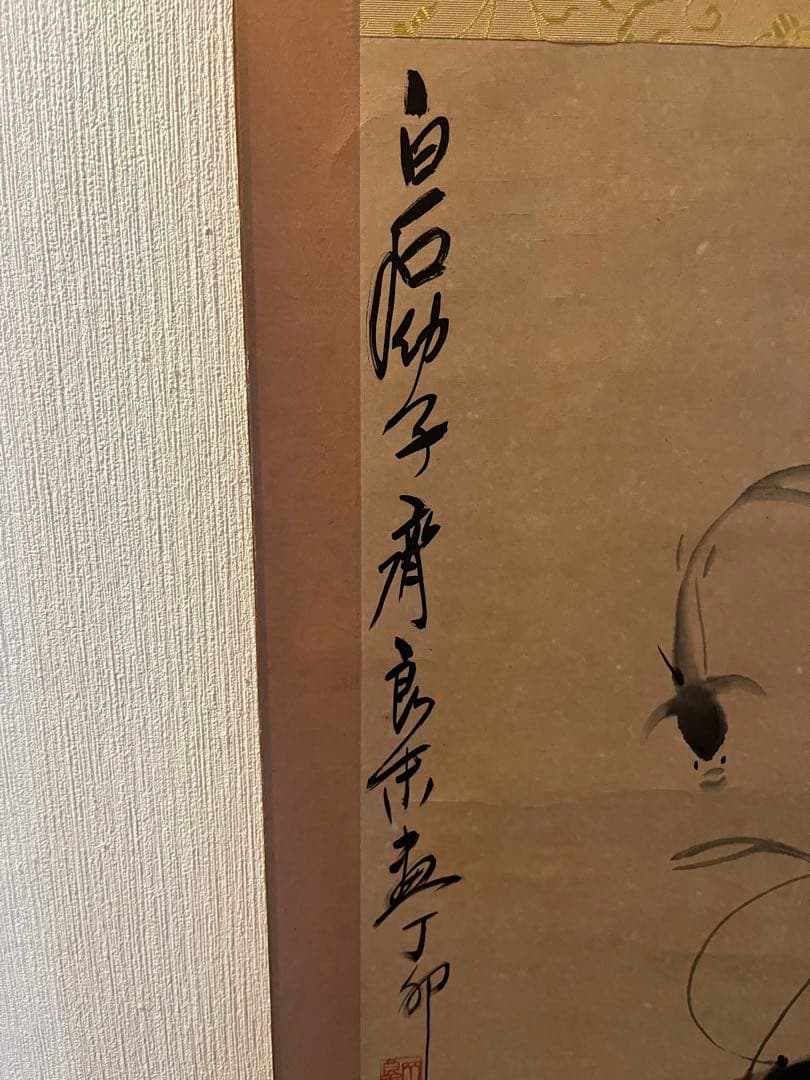 白石幼子齊良末画丁卯